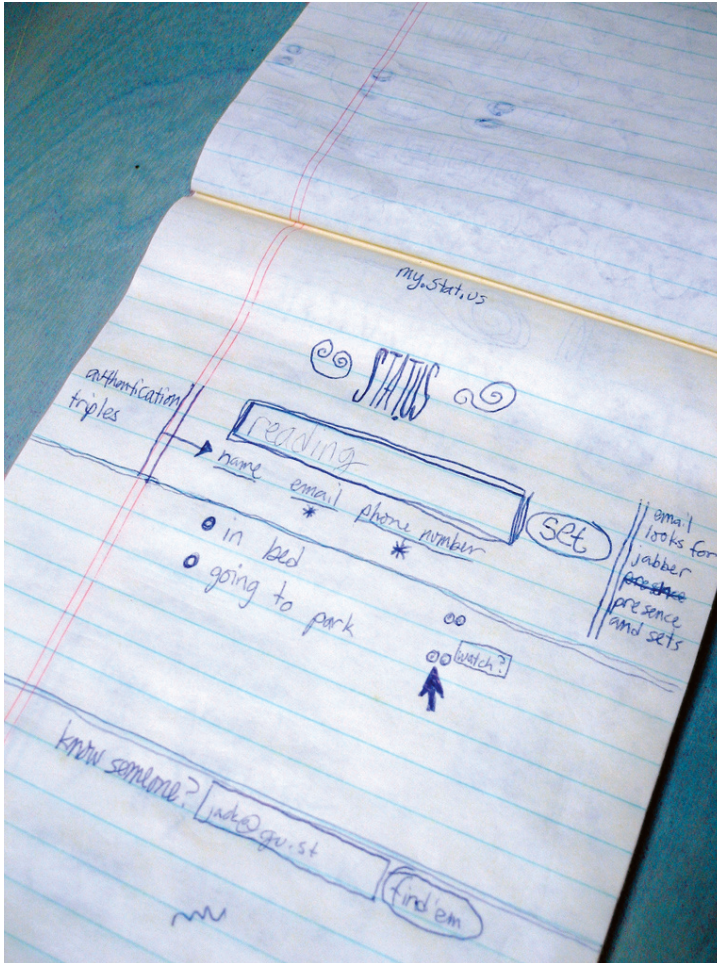 my.stat.us
STAT.US
authentication
triples
reading
name
email
phone number
*
*
set
email
looks for
jabber
presence
and sets
in bed
going to park
watch?
know someone?
jack@gu.st
find'em